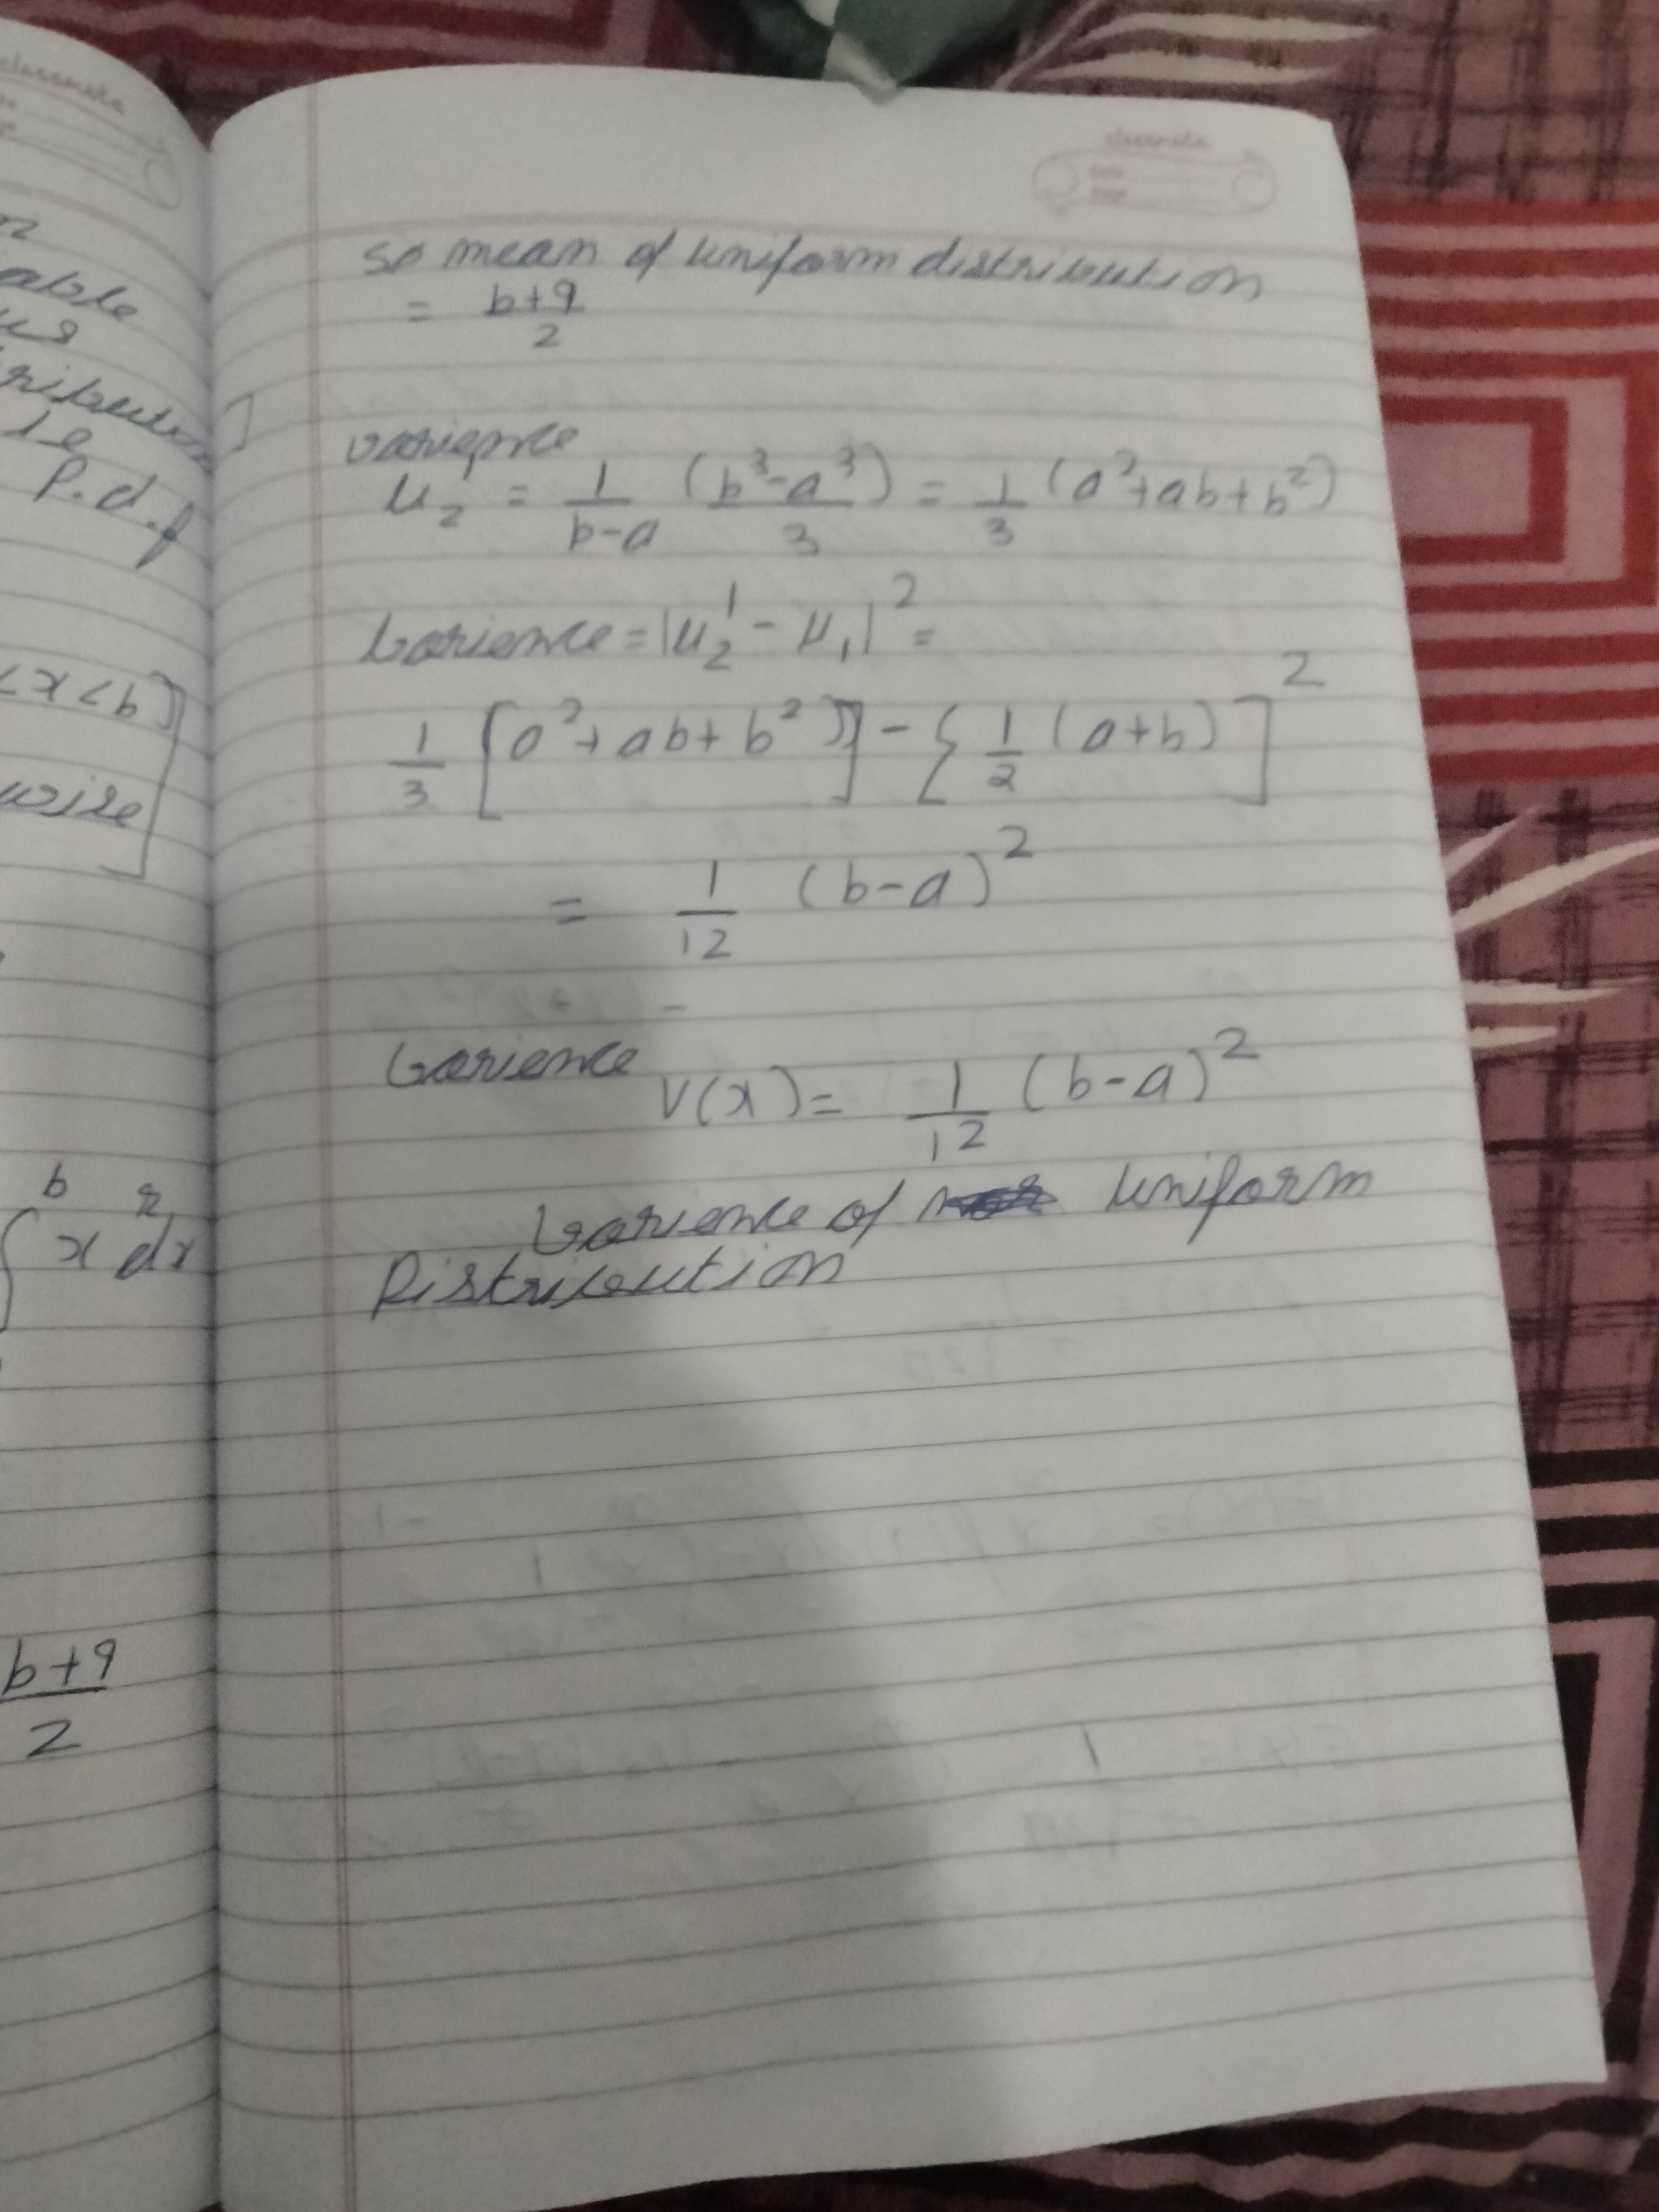 classmate
able
ribution
P.d.f
<x<b]
wise
b
x^r dx
b+a
2
classmate
so mean of uniform distribution
= b+a
2
varience
μ2' = 1/b-a (b³-a³)/3 = 1/3 (a²+ab+b²)
Varience = |μ2' - μ1|² =
1/3 [a²+ab+b²] - {1/2 (a+b)]²
= 1/12 (b-a)²
Varience
V(x) = 1/12 (b-a)²
Varience of uniform
Distribution